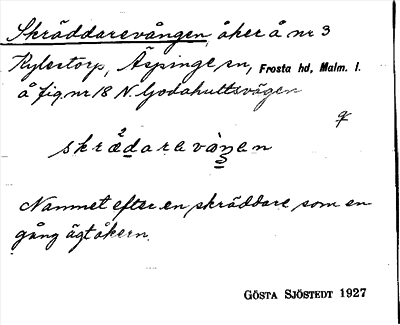 Skräddarevången, åker å nr 3
Kylestorp, Äspinge sn, Frosta hd, Malm. l.
å fig. nr 18 N. Godahultsvägen
skrädarevàŋen
Namnet efter en skräddare som en
gång ägt åkern.
GÖSTA SJÖSTEDT 1927